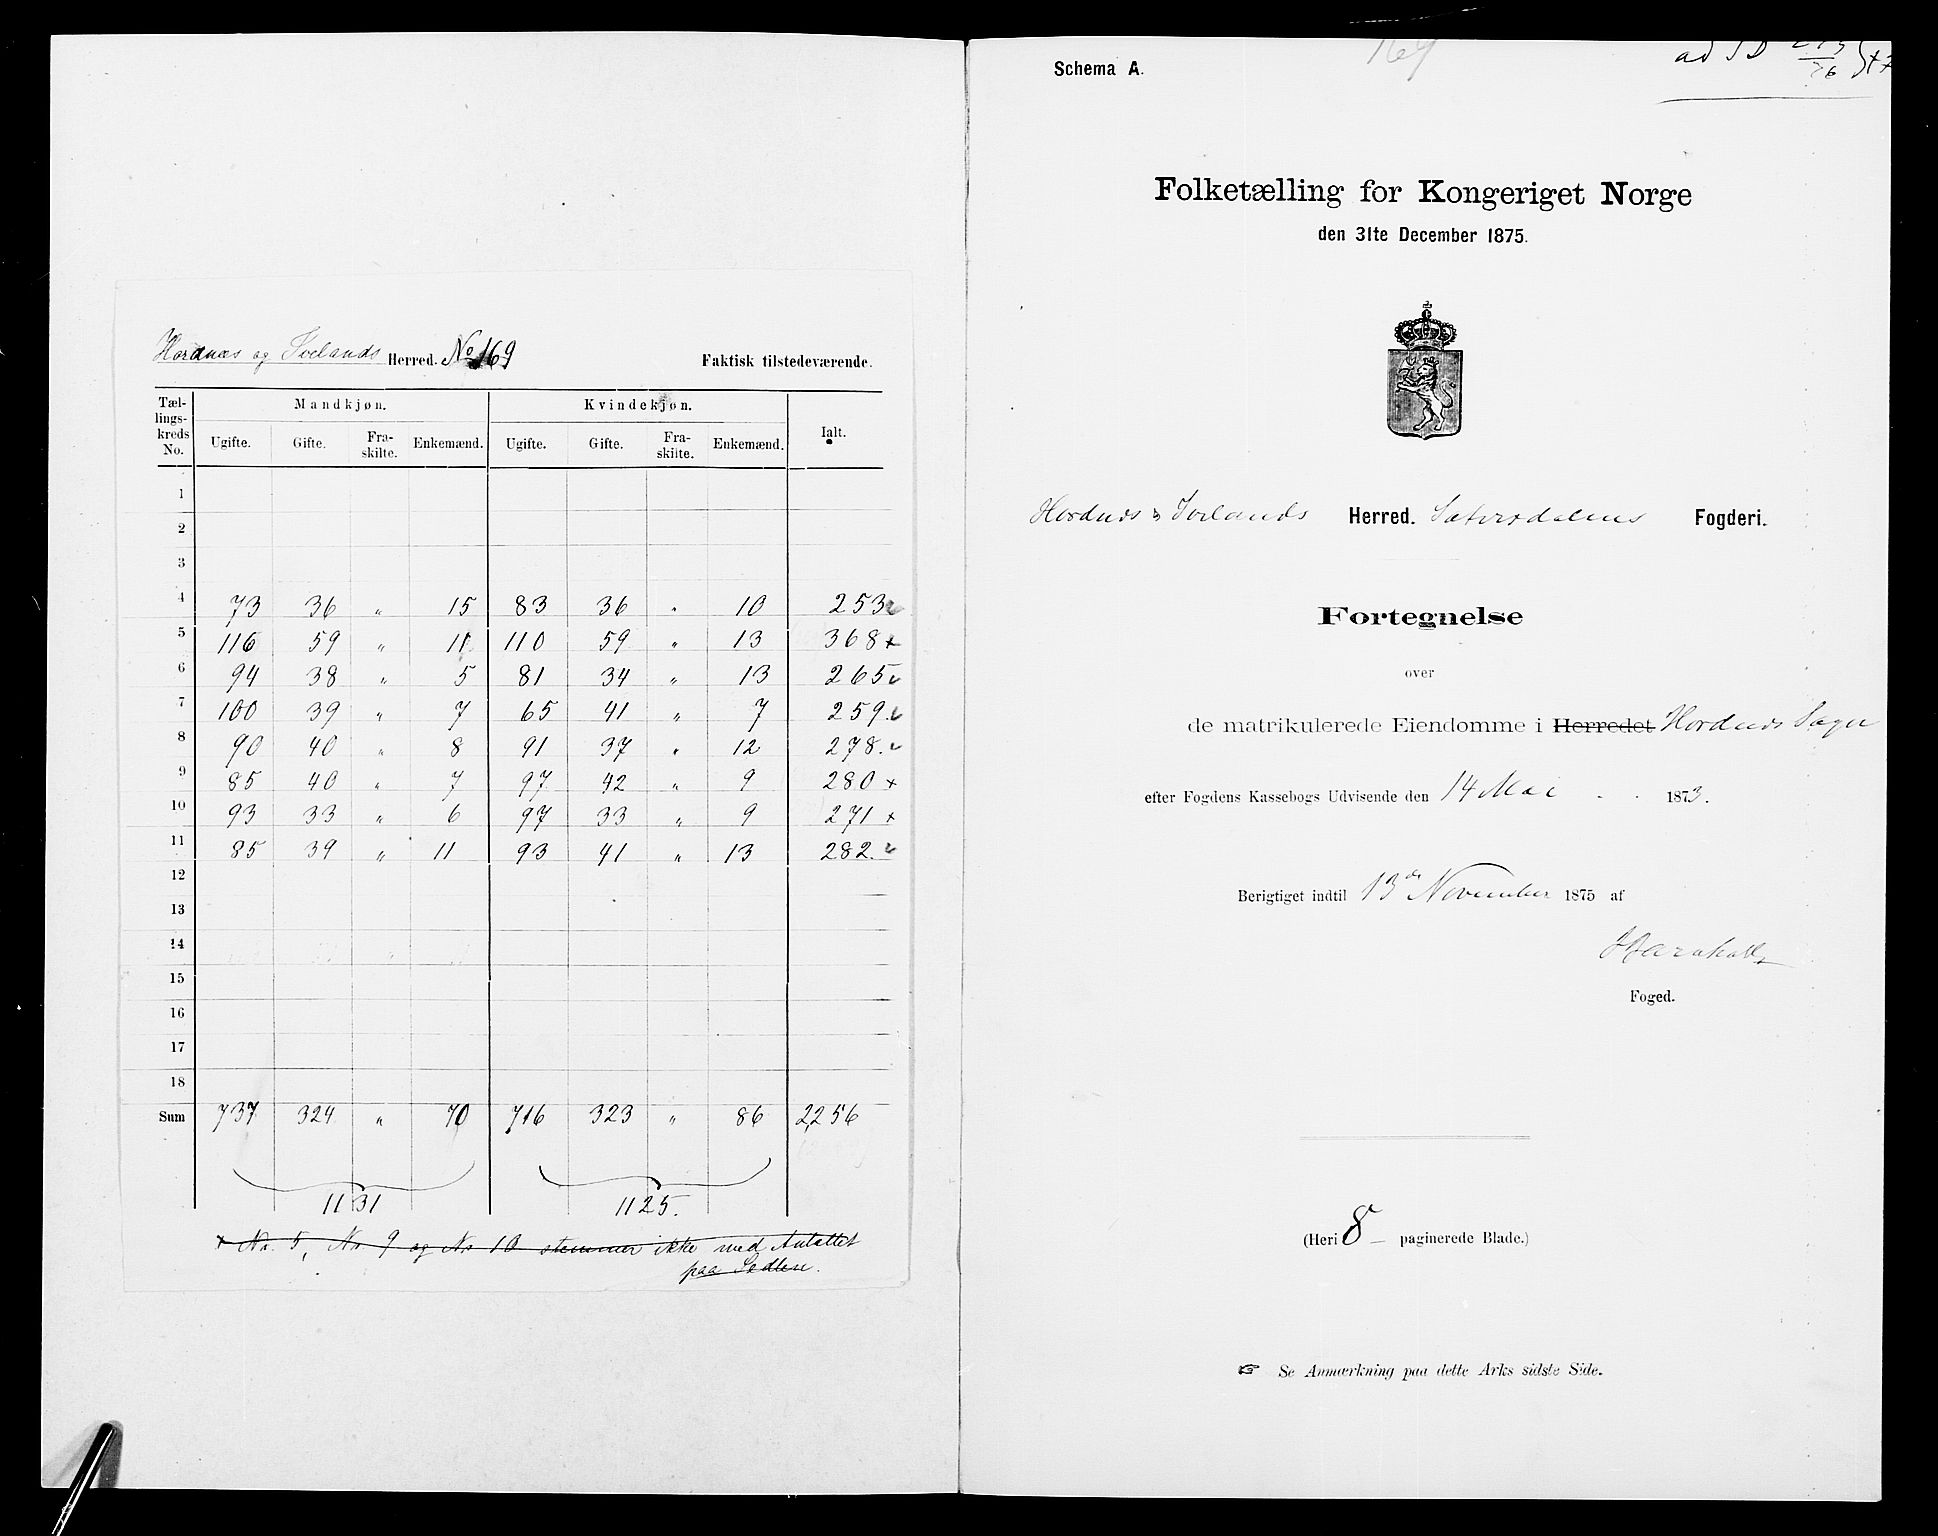 Hordnæs og Ivelands Herred. No 169 Faktisk tilstedeværende.
Tællingskreds No. Mandkjøn. Kvindekjøn. Ialt.
Ugifte. Gifte. Fraskilte. Enkemænd. Ugifte. Gifte. Fraskilte. Enkemænd.
1
2
3
4 73 36 " 15 83 36 " 10 253
5 116 59 " 11 110 59 " 13 368 x
6 94 38 " 5 81 34 " 13 265
7 100 39 " 7 65 41 " 7 259.
8 90 40 " 8 91 37 " 12 278.
9 85 40 " 7 97 42 " 9 280 x
10 93 33 " 6 97 33 " 9 271 x
11 85 39 " 11 93 41 " 13 282.
12
13
14
15
16
17
18
Sum 737 324 " 70 716 323 " 86 2256
1131 1125.
x No. 5, No. 9 og No 10 stemmer ikke med Antallet
paa Sedlen.
169
Schema A.
Folketælling for Kongeriget Norge
den 31te December 1875.
Hordnes & Ivelands Herred. Sætersdalens Fogderi.
Fortegnelse
over
de matrikulerede Eiendomme i Herredet Hordnes Sogn
efter Fogdens Kassebogs Udvisende den 14 Mai 1873.
Berigtiget indtil 13de November 1875 af
Foged.
(Heri 8 paginerede Blade.)
☞ Se Anmærkning paa dette Arks sidste Side.